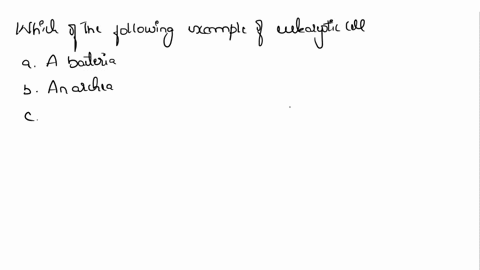 Which of the following example of eukaryotic cell
a. A bacteria
b. An archea
c.